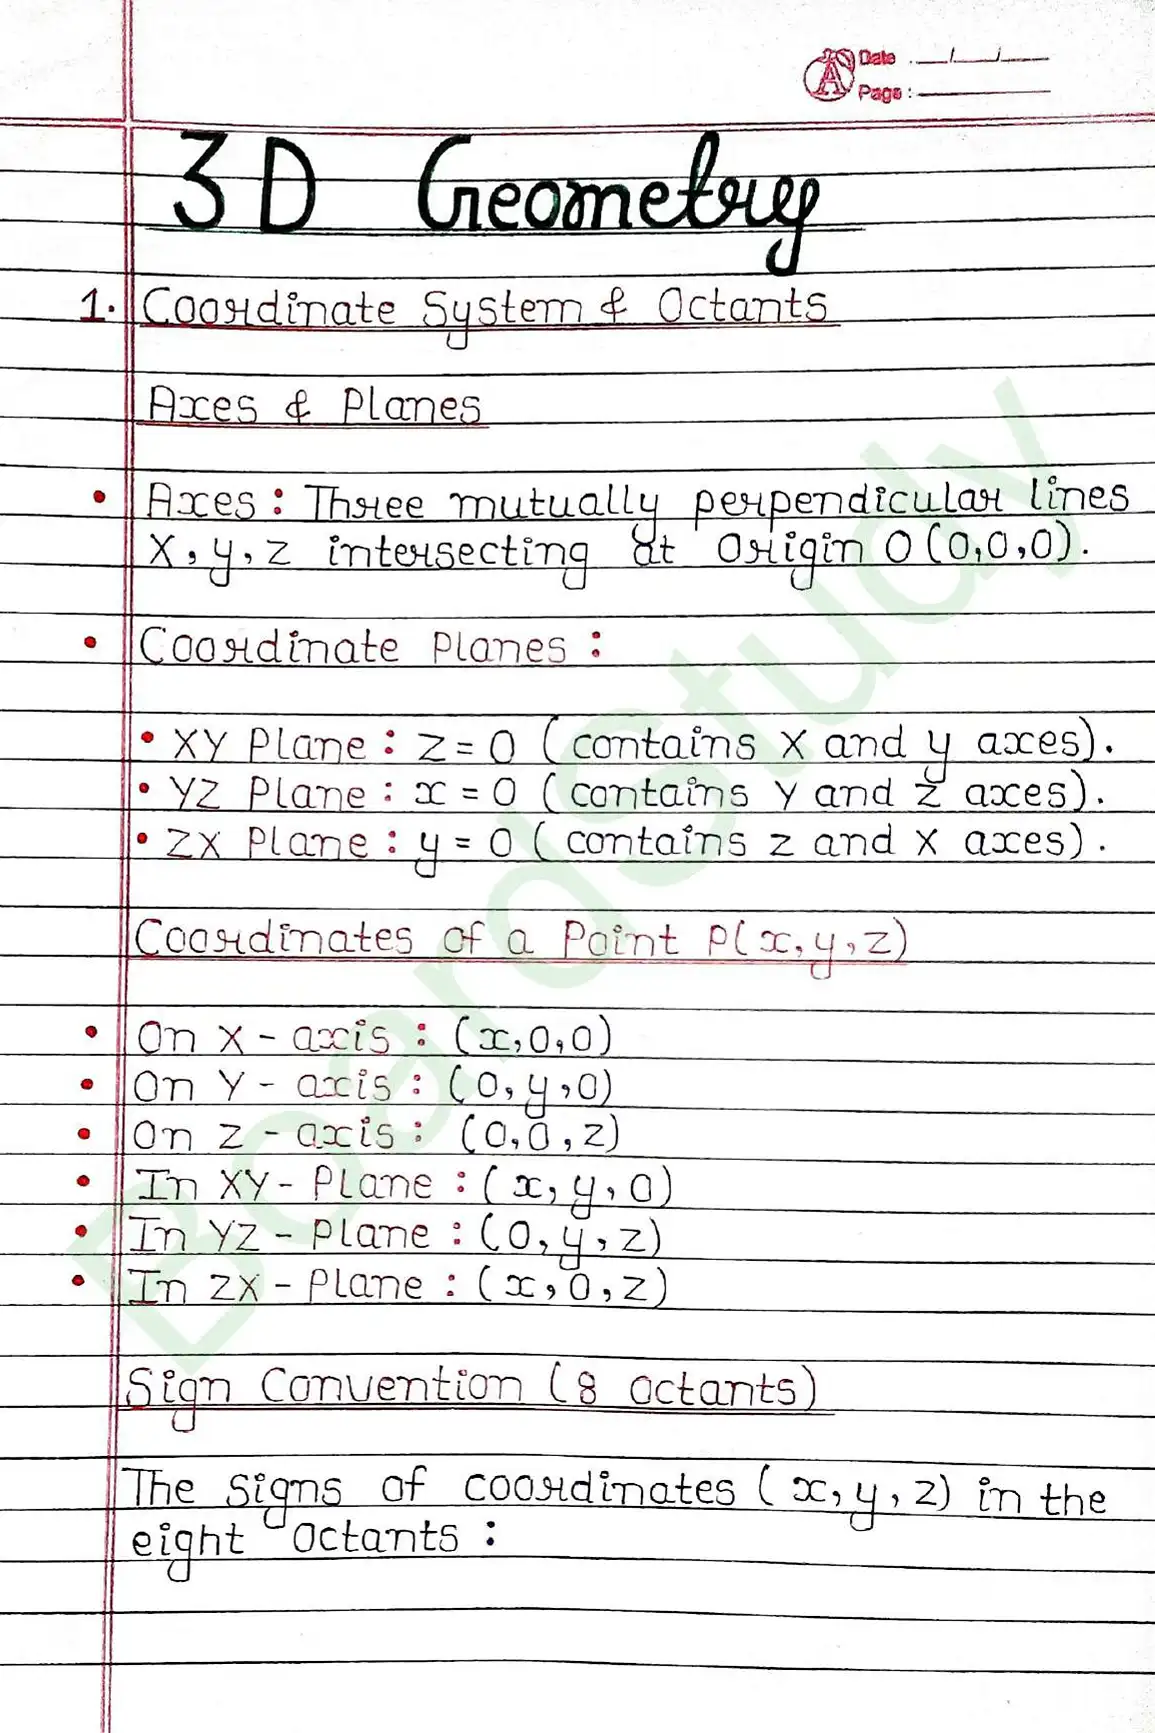 Date : __/__/__
Page :
3D Geometry
1. Coordinate System & Octants
Axes & Planes
• Axes : Three mutually perpendicular lines
X, y, z intersecting at origin O(0,0,0).
• Coordinate Planes :
• XY Plane : z = 0 (contains X and y axes).
• YZ Plane : x = 0 (contains Y and z axes).
• ZX Plane : y = 0 (contains z and X axes).
Coordinates of a Point P(x,y,z)
• On X - axis : (x,0,0)
• On Y - axis : (0,y,0)
• On z - axis : (0,0,z)
• In XY - Plane : (x,y,0)
• In YZ - Plane : (0,y,z)
• In ZX - Plane : (x,0,z)
Sign Convention (8 octants)
The signs of coordinates (x,y,z) in the
eight octants :
BoardStudy